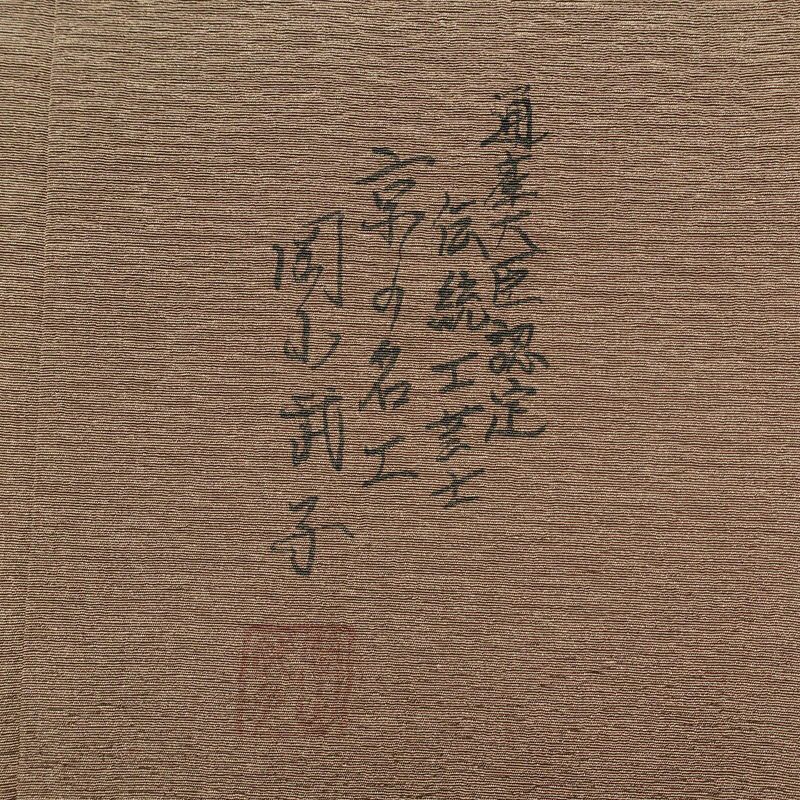 通産大臣認定
伝統工芸士
京の名工
岡山武子